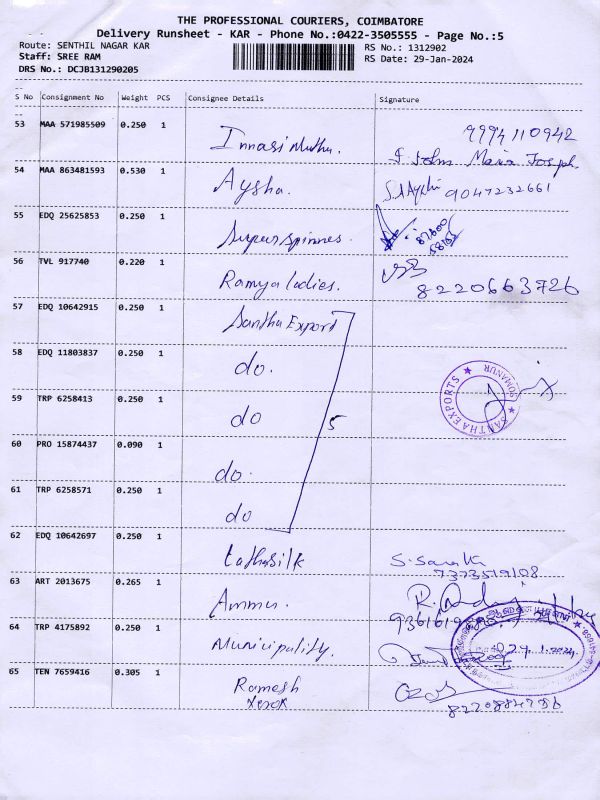 THE PROFESSIONAL COURIERS, COIMBATORE
Delivery Runsheet - KAR - Phone No.:0422-3505555 - Page No.:5
Route: SENTHIL NAGAR KAR RS No.: 1312902
Staff: SREE RAM RS Date: 29-Jan-2024
DRS No.: DCJB131290205
S No Consignment No Weight PCS Consignee Details Signature
53 MAA 571985509 0.250 1 Innasi Muthu. 9994110942
I. John Maria Joseph
54 MAA 863481593 0.530 1 Aysha. 9047232661
55 EDQ 25625853 0.250 1 Superspinnes. 87600
56 TVL 917740 0.220 1 Ramya ladies. 8220663726
57 EDQ 10642915 0.250 1 Santha Export
58 EDQ 11803837 0.250 1 do.
SANTHA EXPORTS ★ SOMANUR ★
59 TRP 6258413 0.250 1 do 5
60 PRO 15874437 0.090 1 do.
61 TRP 6258571 0.250 1 do
62 EDQ 10642697 0.250 1 S.
7373519108
63 ART 2013675 0.265 1 Ammu. R.
64 TRP 4175892 0.250 1 Municipality.
65 TEN 7659416 0.305 1 Ramesh
Xerox